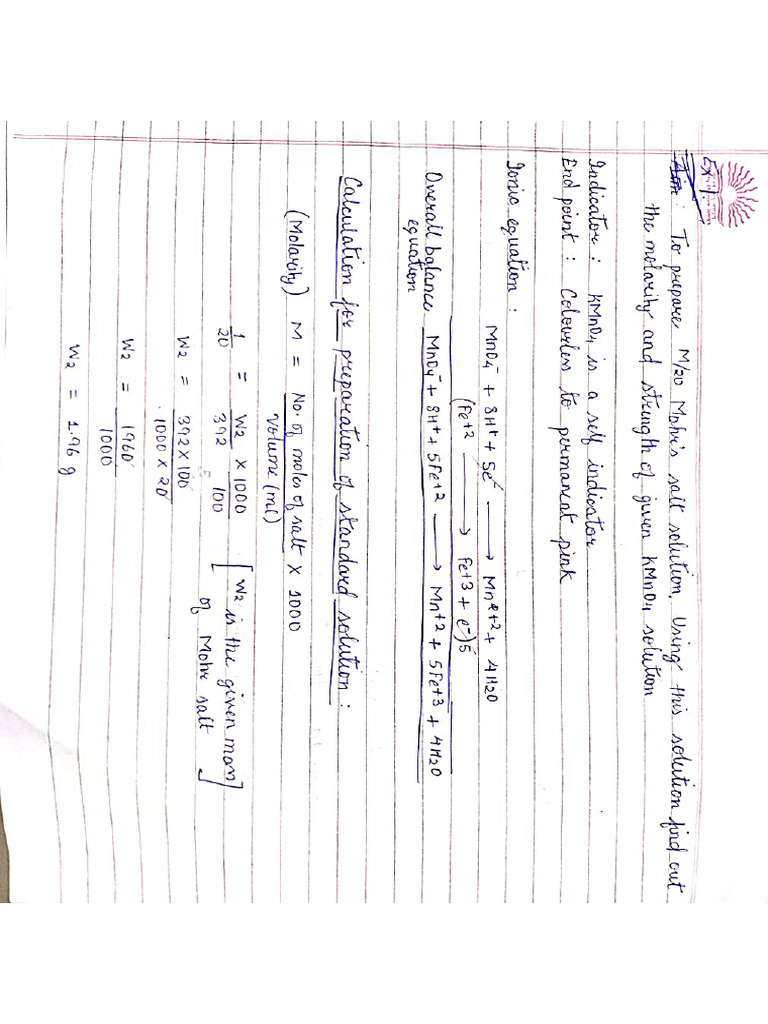 Ex 1.
Aim : To prepare M/20 Mohr's salt solution. Using this solution find out
the molarity and strength of given KMnO4 solution
Indicator : KMnO4 is a self indicator
End point : Colourless to permanent pink
Ionic equation :
MnO4⁻ + 8H⁺ + 5e⁻ ⟶ Mn⁺² + 4H2O
(Fe+2 ⟶ Fe+3 + e⁻)5
Overall balance MnO4⁻ + 8H⁺ + 5Fe+2 ⟶ Mn+2 + 5Fe+3 + 4H2O
equation
Calculation for preparation of standard solution :
(Molarity) M = No. of moles of salt × 1000
Volume (ml)
1/20 = W2/392 × 1000/100 [W2 is the given mass
of Mohr salt]
W2 = 392 × 100
1000 × 20
W2 = 1960
1000
W2 = 1.96 g